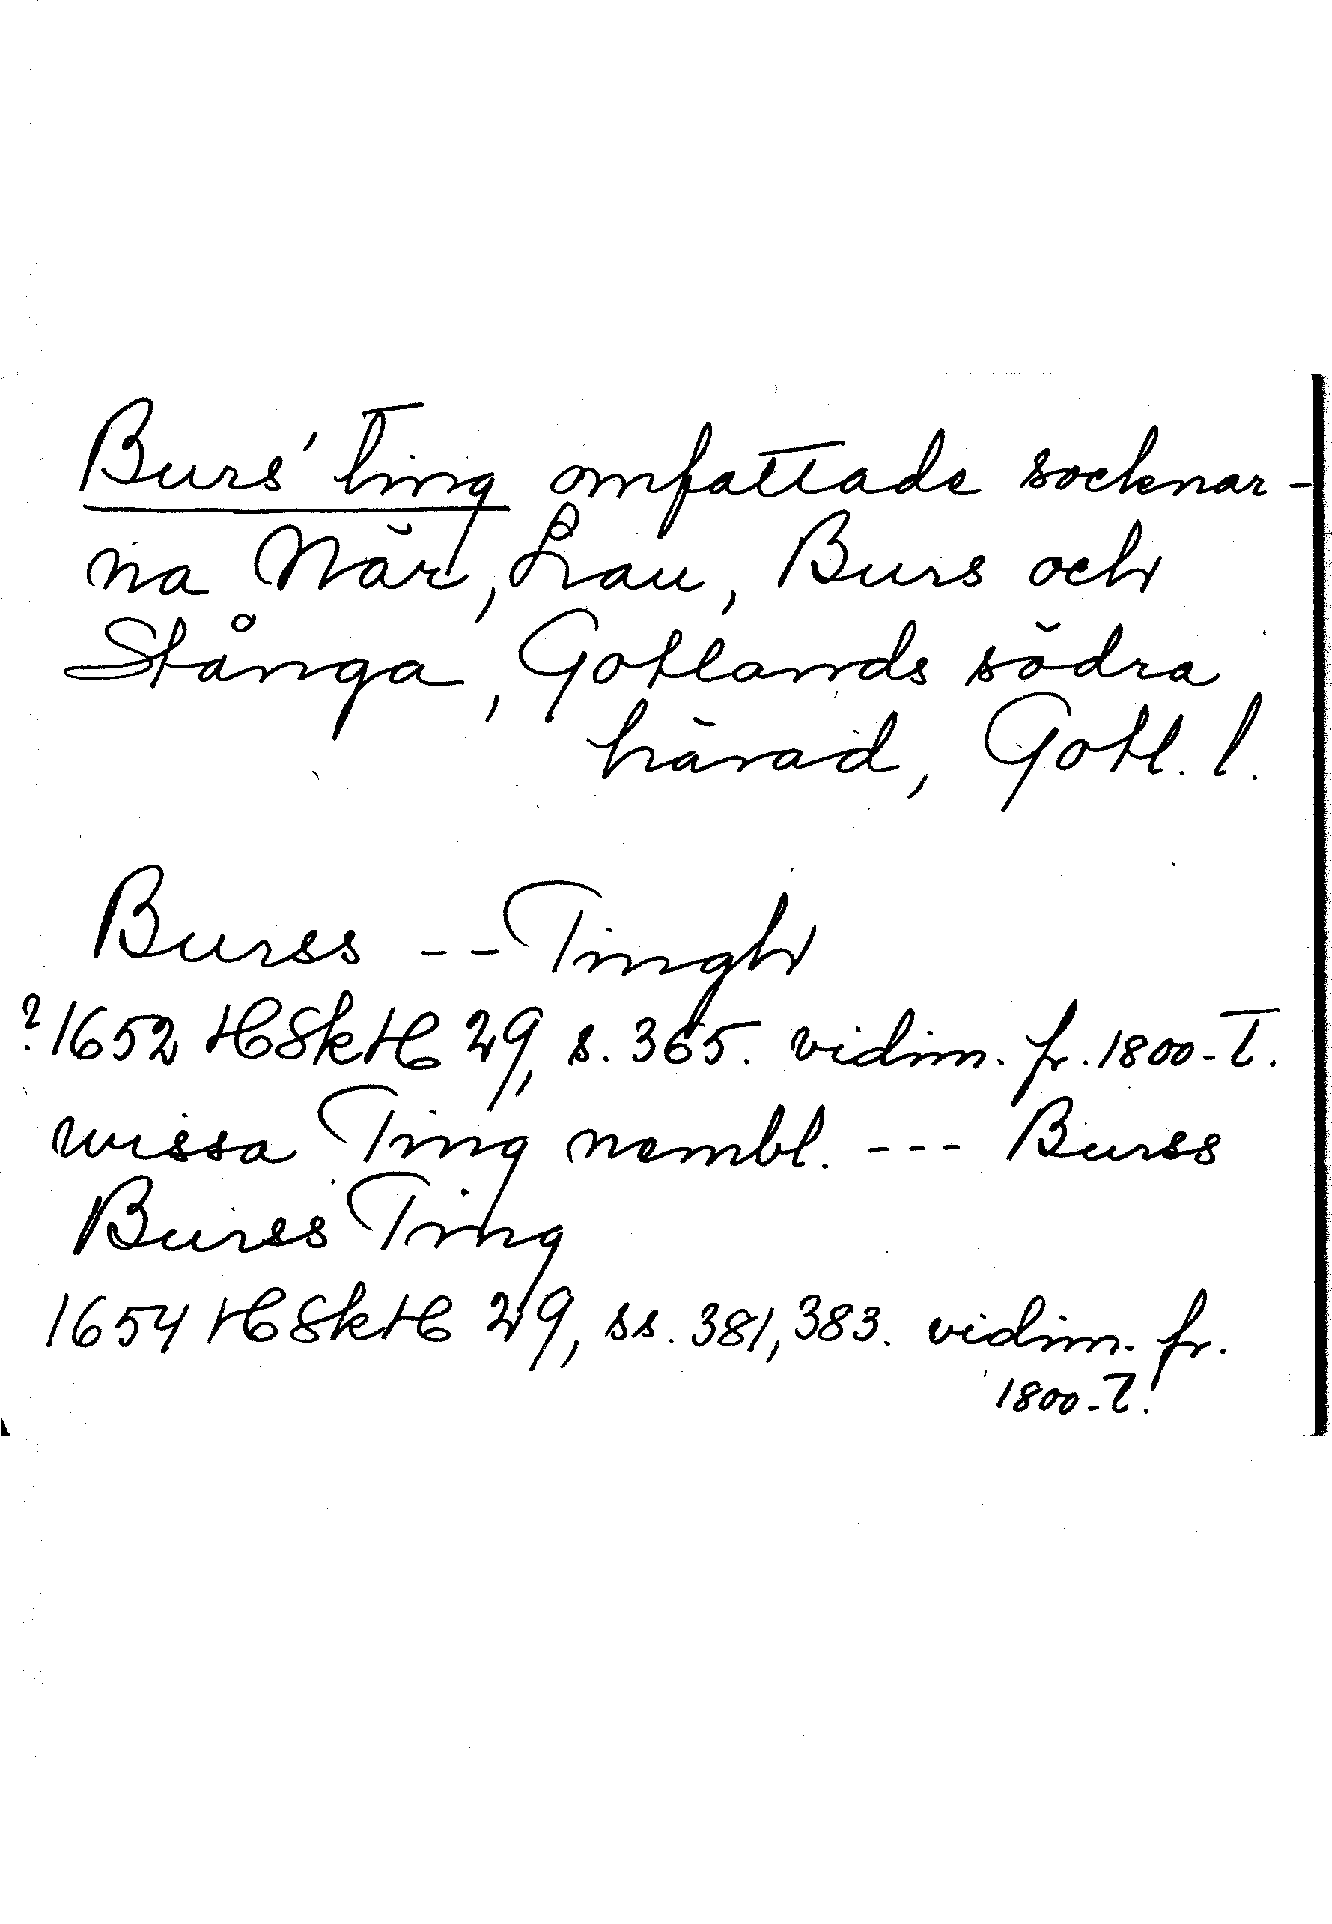 Burs' ting omfattade socknar-
na När, Lau, Burs och
Stånga, Gotlands södra
härad, Gotl. l.
Burss -- Tingh
? 1652 HSkH 29, s. 365. vidim. fr. 1800-T.
wissa Ting nembl. --- Burss
Burss Ting
1654 HSkH 29, ss. 381, 383. vidim. fr.
1800-T.